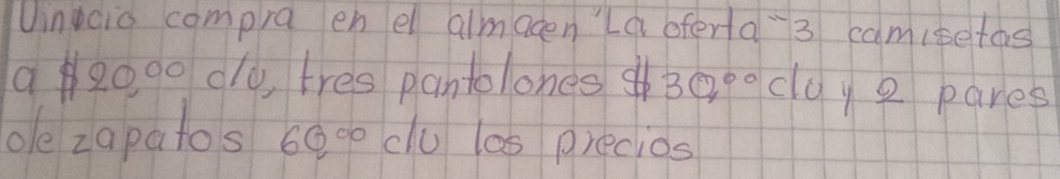 Vinicio compra en el almacen "La oferta" 3 camisetas
a $20,00 c/u, tres pantolones $30,00 c/u y 2 pares
de zapatos 60,00 c/u los precios